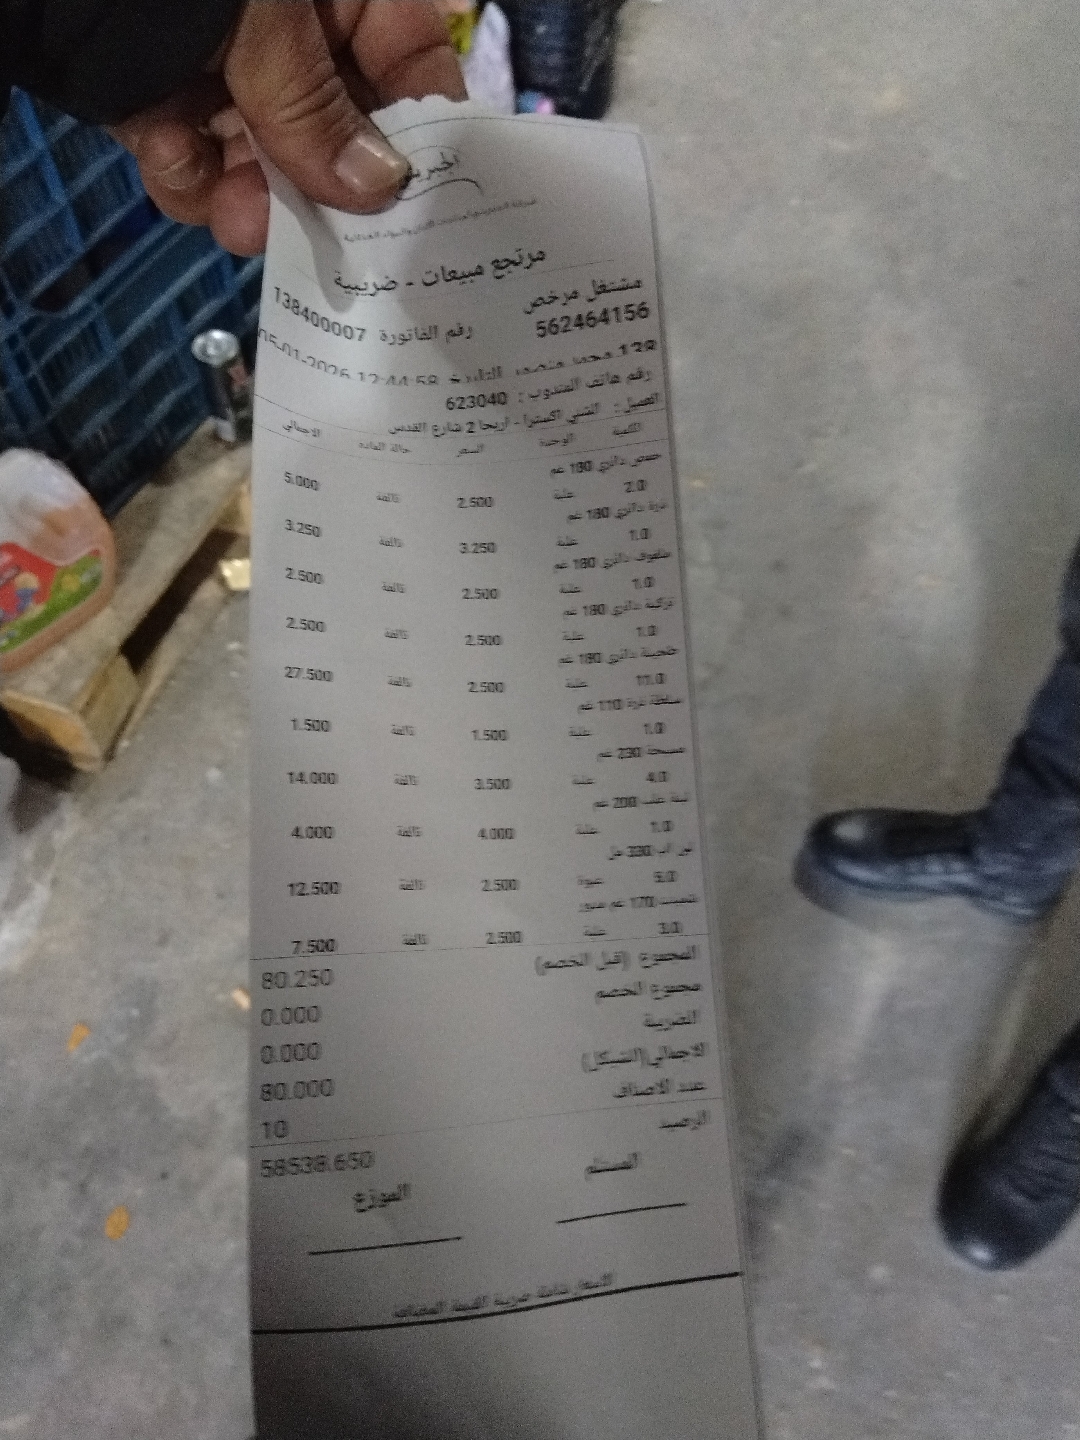 الجبريني
مرتجع مبيعات - ضريبية
مشتغل مرخص
562464156
رقم الفاتورة 138400007
التاريخ 05-01-2026 12:44:58
رقم هاتف المندوب : 623040
العميل: الشني اكسترا - اريحا 2 شارع القدس
الكمية الوحدة السعر حالة المادة الاجمالي
حمص دائري 180 غم
2.0 علبة 2.500 تالفة 5.000
ذرة دائري 180 غم
1.0 علبة 3.250 تالفة 3.250
ملفوف دائري 180 غم
1.0 علبة 2.500 تالفة 2.500
تركية دائري 180 غم
1.0 علبة 2.500 تالفة 2.500
طحينة دائري 180 غم
11.0 علبة 2.500 تالفة 27.500
سلطة ذرة 110 غم
1.0 علبة 1.500 تالفة 1.500
مسبحة 230 غم
4.0 علبة 3.500 تالفة 14.000
لبنة علب 200 غم
1.0 علبة 4.000 تالفة 4.000
330 مل
5.0 عبوة 2.500 تالفة 12.500
170 غم
3.0 علبة 2.500 تالفة 7.500
المجموع (قبل الخصم) 80.250
مجموع الخصم 0.000
الضريبة 0.000
الاجمالي(الشيكل) 80.000
عدد الاصناف 10
الرصيد 58538.650
المستلم الموزع
الاسعار شاملة ضريبة القيمة المضافة